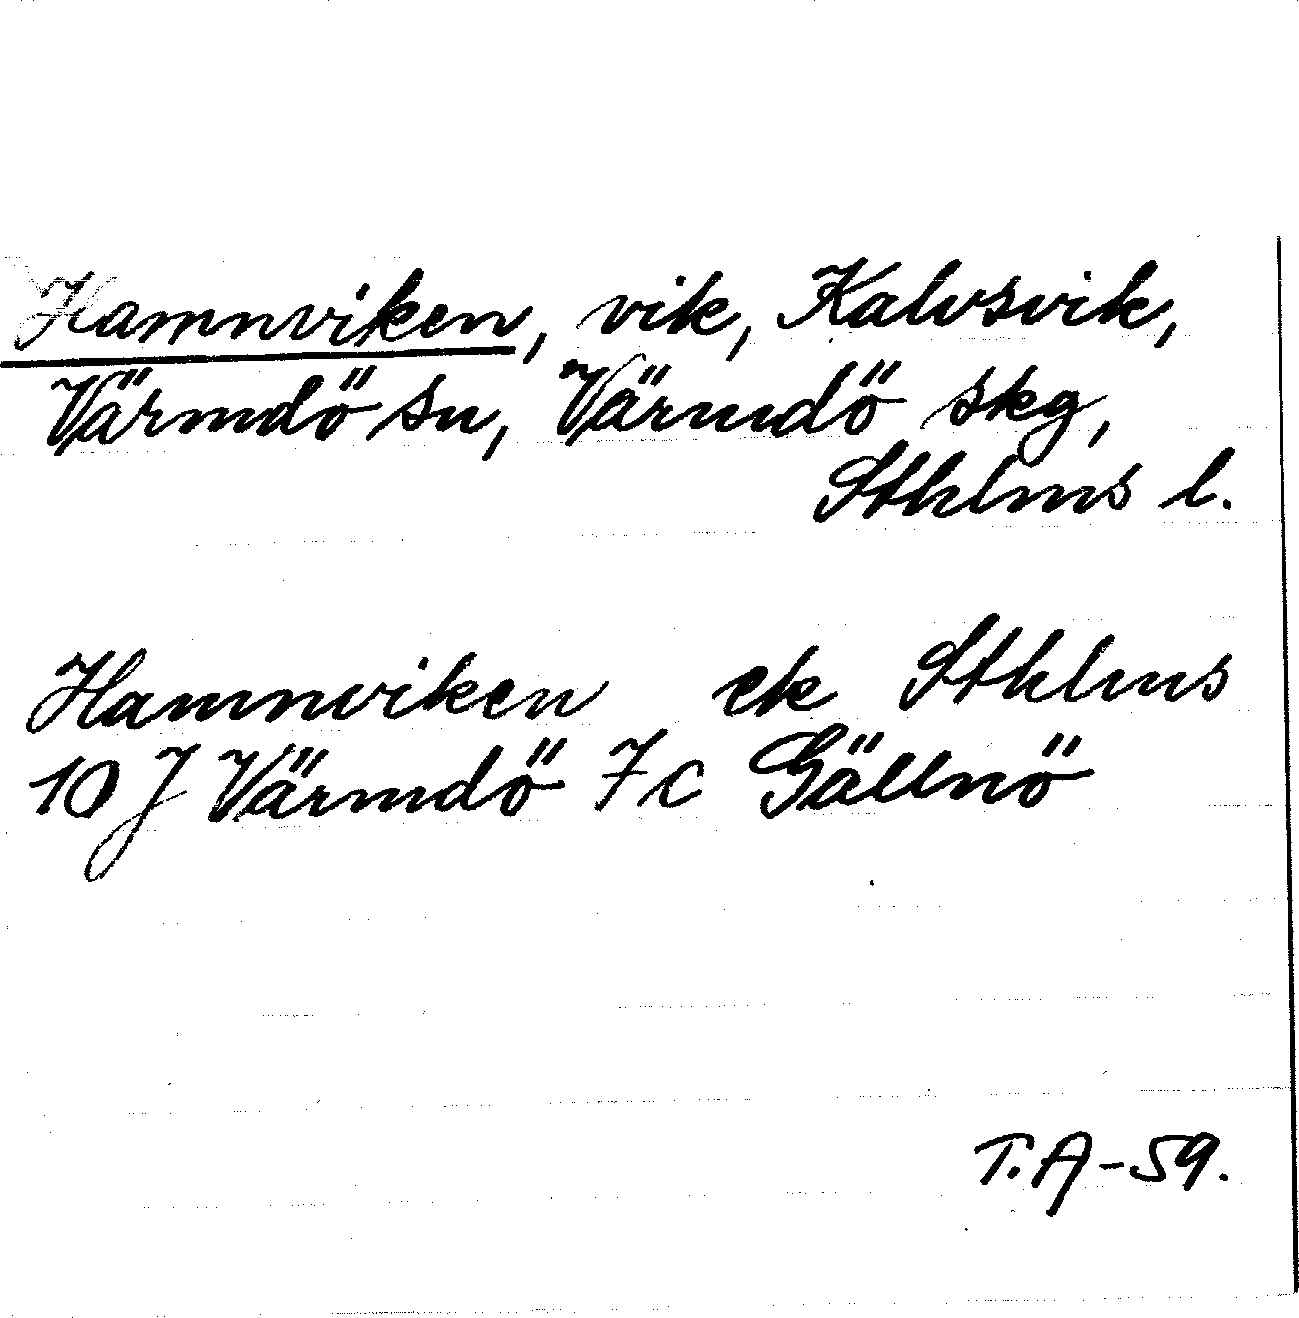 Hamnviken, vik, Kalvsvik,
Värmdö sn, Värmdö skg,
Sthlms l.
Hamnviken ek Sthlms
10 J Värmdö 7c Gällnö
T.A-59.